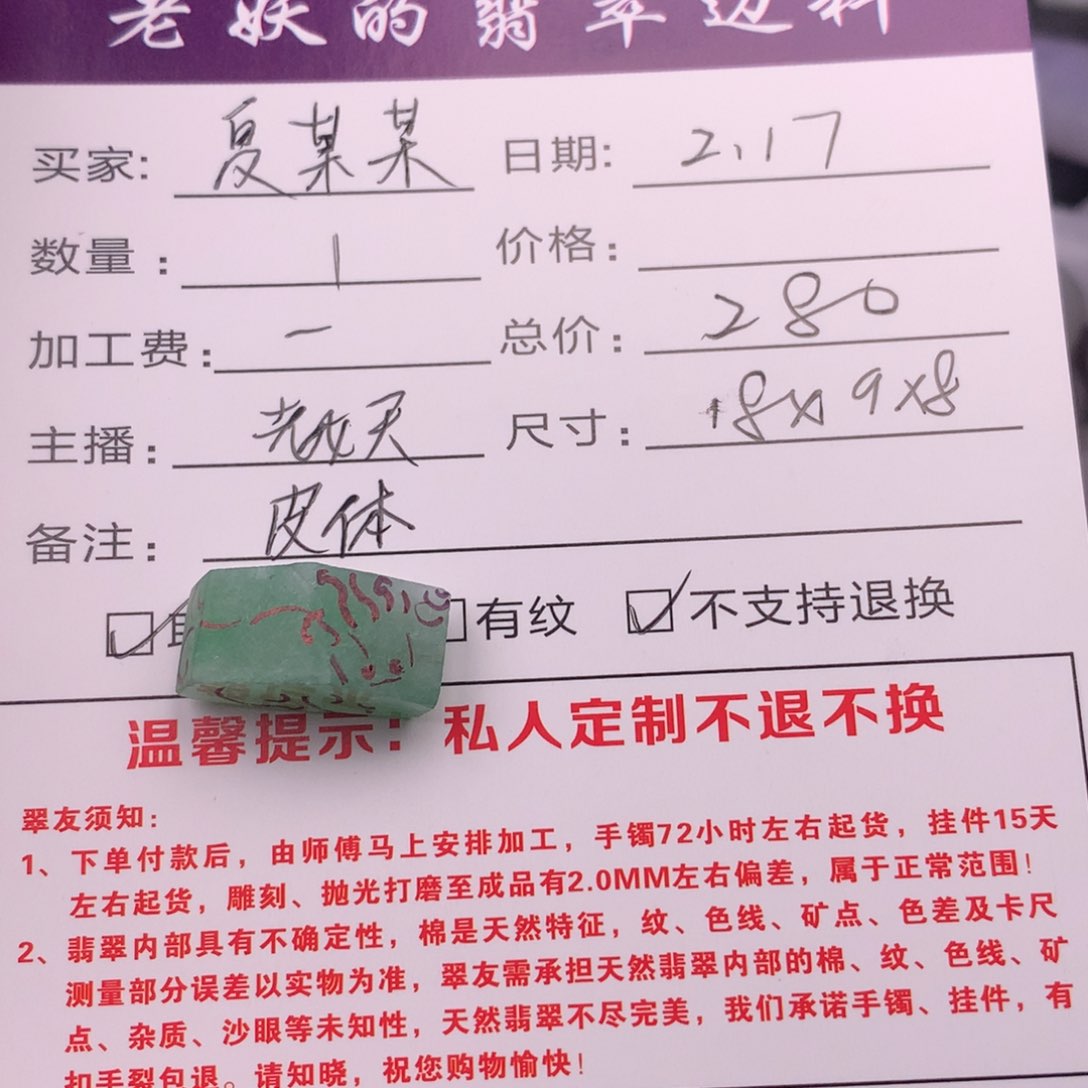 老妖的翡翠边料
买家: 夏某某 日期: 2.17
数量: 1 价格:
加工费: 一 总价: 280
主播: 尺寸: 18x9x8
备注: 皮体
有纹 不支持退换
温馨提示: 私人定制不退不换
翠友须知:
1、下单付款后,由师傅马上安排加工,手镯72小时左右起货,挂件15天
左右起货,雕刻、抛光打磨至成品有2.0MM左右偏差,属于正常范围!
2、翡翠内部具有不确定性,棉是天然特征,纹、色线、矿点、色差及卡尺
测量部分误差以实物为准,翠友需承担天然翡翠内部的棉、纹、色线、矿
点、杂质、沙眼等未知性,天然翡翠不尽完美,我们承诺手镯、挂件,有
扣手裂包退。请知晓,祝您购物愉快!